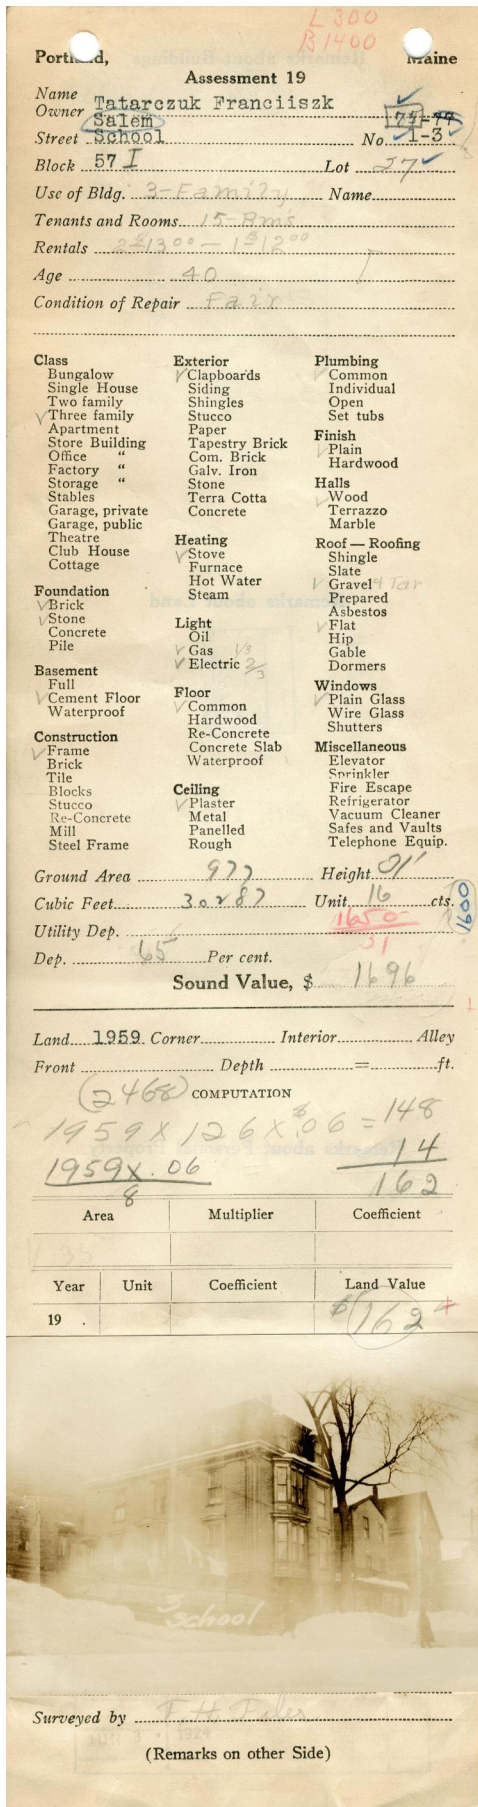 L 300
B 1400
Portland, Maine
Assessment 19
Name
Owner Tatarczuk Franciiszk
Salem 77-79
Street School No. 1-3
Block 57 I Lot 27
Use of Bldg. 3-Family Name
Tenants and Rooms 15-Rms
Rentals
Age 40
Condition of Repair Fair
Class
Bungalow
Single House
Two family
✓Three family
Apartment
Store Building
Office "
Factory "
Storage "
Stables
Garage, private
Garage, public
Theatre
Club House
Cottage
Foundation
✓Brick
✓Stone
Concrete
Pile
Basement
Full
✓Cement Floor
Waterproof
Construction
✓Frame
Brick
Tile
Blocks
Stucco
Re-Concrete
Mill
Steel Frame
Exterior
✓Clapboards
Siding
Shingles
Stucco
Paper
Tapestry Brick
Com. Brick
Galv. Iron
Stone
Terra Cotta
Concrete
Heating
✓Stove
Furnace
Hot Water
Steam
Light
Oil
✓Gas 1/3
✓Electric 2/3
Floor
✓Common
Hardwood
Re-Concrete
Concrete Slab
Waterproof
Ceiling
✓Plaster
Metal
Panelled
Rough
Plumbing
✓Common
Individual
Open
Set tubs
Finish
✓Plain
Hardwood
Halls
✓Wood
Terrazzo
Marble
Roof — Roofing
Shingle
Slate
✓Gravel & Tar
Prepared
Asbestos
✓Flat
Hip
Gable
Dormers
Windows
✓Plain Glass
Wire Glass
Shutters
Miscellaneous
Elevator
Sprinkler
Fire Escape
Refrigerator
Vacuum Cleaner
Safes and Vaults
Telephone Equip.
Ground Area 977 Height 31'
Cubic Feet 30287 Unit 16 cts.
1650
Utility Dep. 31
Dep. 65 Per cent.
Sound Value, $ 1696
Land 1959 Corner Interior Alley
Front Depth = ft.
(2468) COMPUTATION
1959 X 126 X $.06 = 148
1959 X .06 14
8 162
Area Multiplier Coefficient
35
Year Unit Coefficient Land Value
19 . $162
3
School
Surveyed by
(Remarks on other Side)